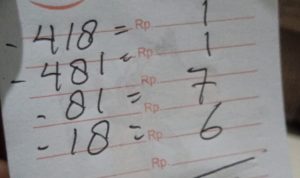 - 418 = Rp 1
- 481 = Rp 1
- 81 = Rp 7
- 18 = Rp 6
Rp